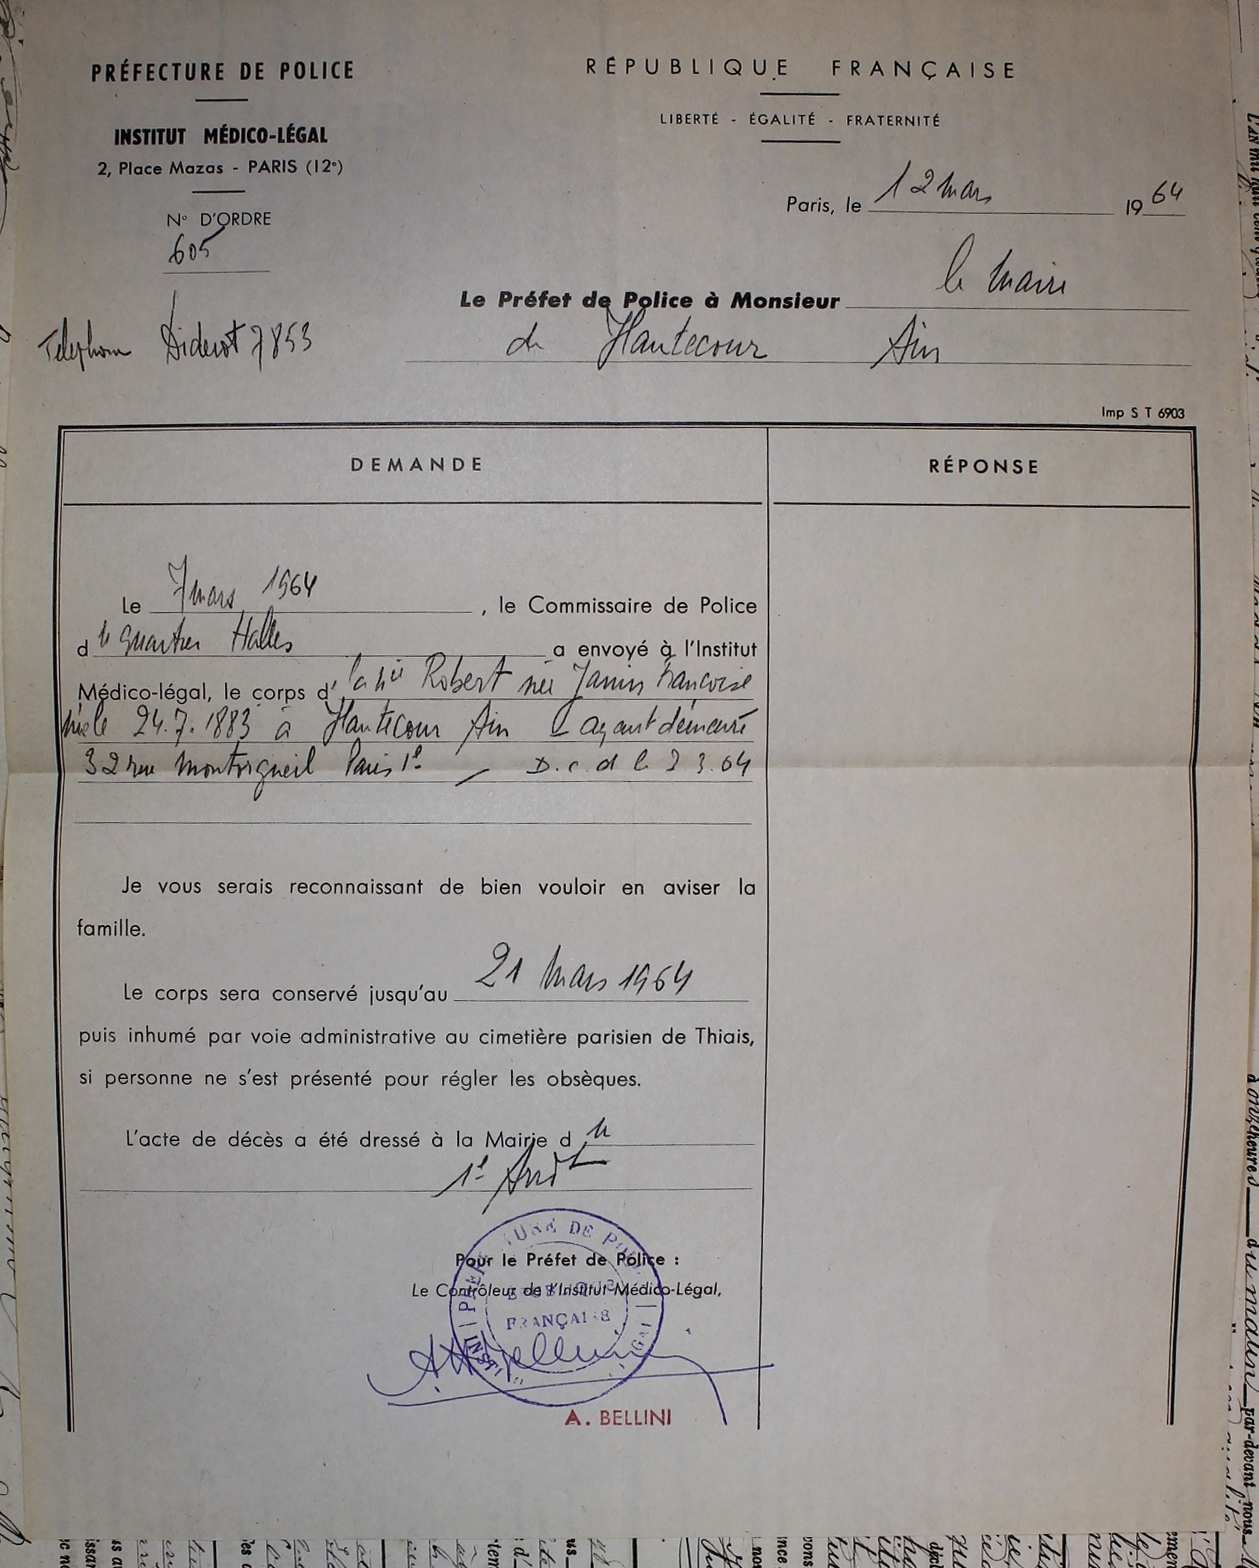 PRÉFECTURE DE POLICE
INSTITUT MÉDICO-LÉGAL
2, Place Mazas - PARIS (12e)
N° D'ORDRE
605
Telephone Diderot 7853
RÉPUBLIQUE FRANÇAISE
LIBERTÉ - ÉGALITÉ - FRATERNITÉ
Paris, le 12 mars 1964
Le Préfet de Police à Monsieur le Maire
de Hautecour Ain
Imp S T 6903
DEMANDE
RÉPONSE
Le 7 mars 1964, le Commissaire de Police
du quartier Halles a envoyé à l'Institut
Médico-légal, le corps d' Robert née Janin Françoise
née le 24.7.1883 à Hautecour Ain ayant demeuré
32 rue Montorgueil Paris 1e D.c.d le 3.64
Je vous serais reconnaissant de bien vouloir en aviser la
famille.
Le corps sera conservé jusqu'au 21 mars 1964
puis inhumé par voie administrative au cimetière parisien de Thiais,
si personne ne s'est présenté pour régler les obsèques.
L'acte de décès a été dressé à la Mairie du
1e Ardt
Pour le Préfet de Police :
Le Contrôleur de l'Institut Médico-Légal,
A. BELLINI